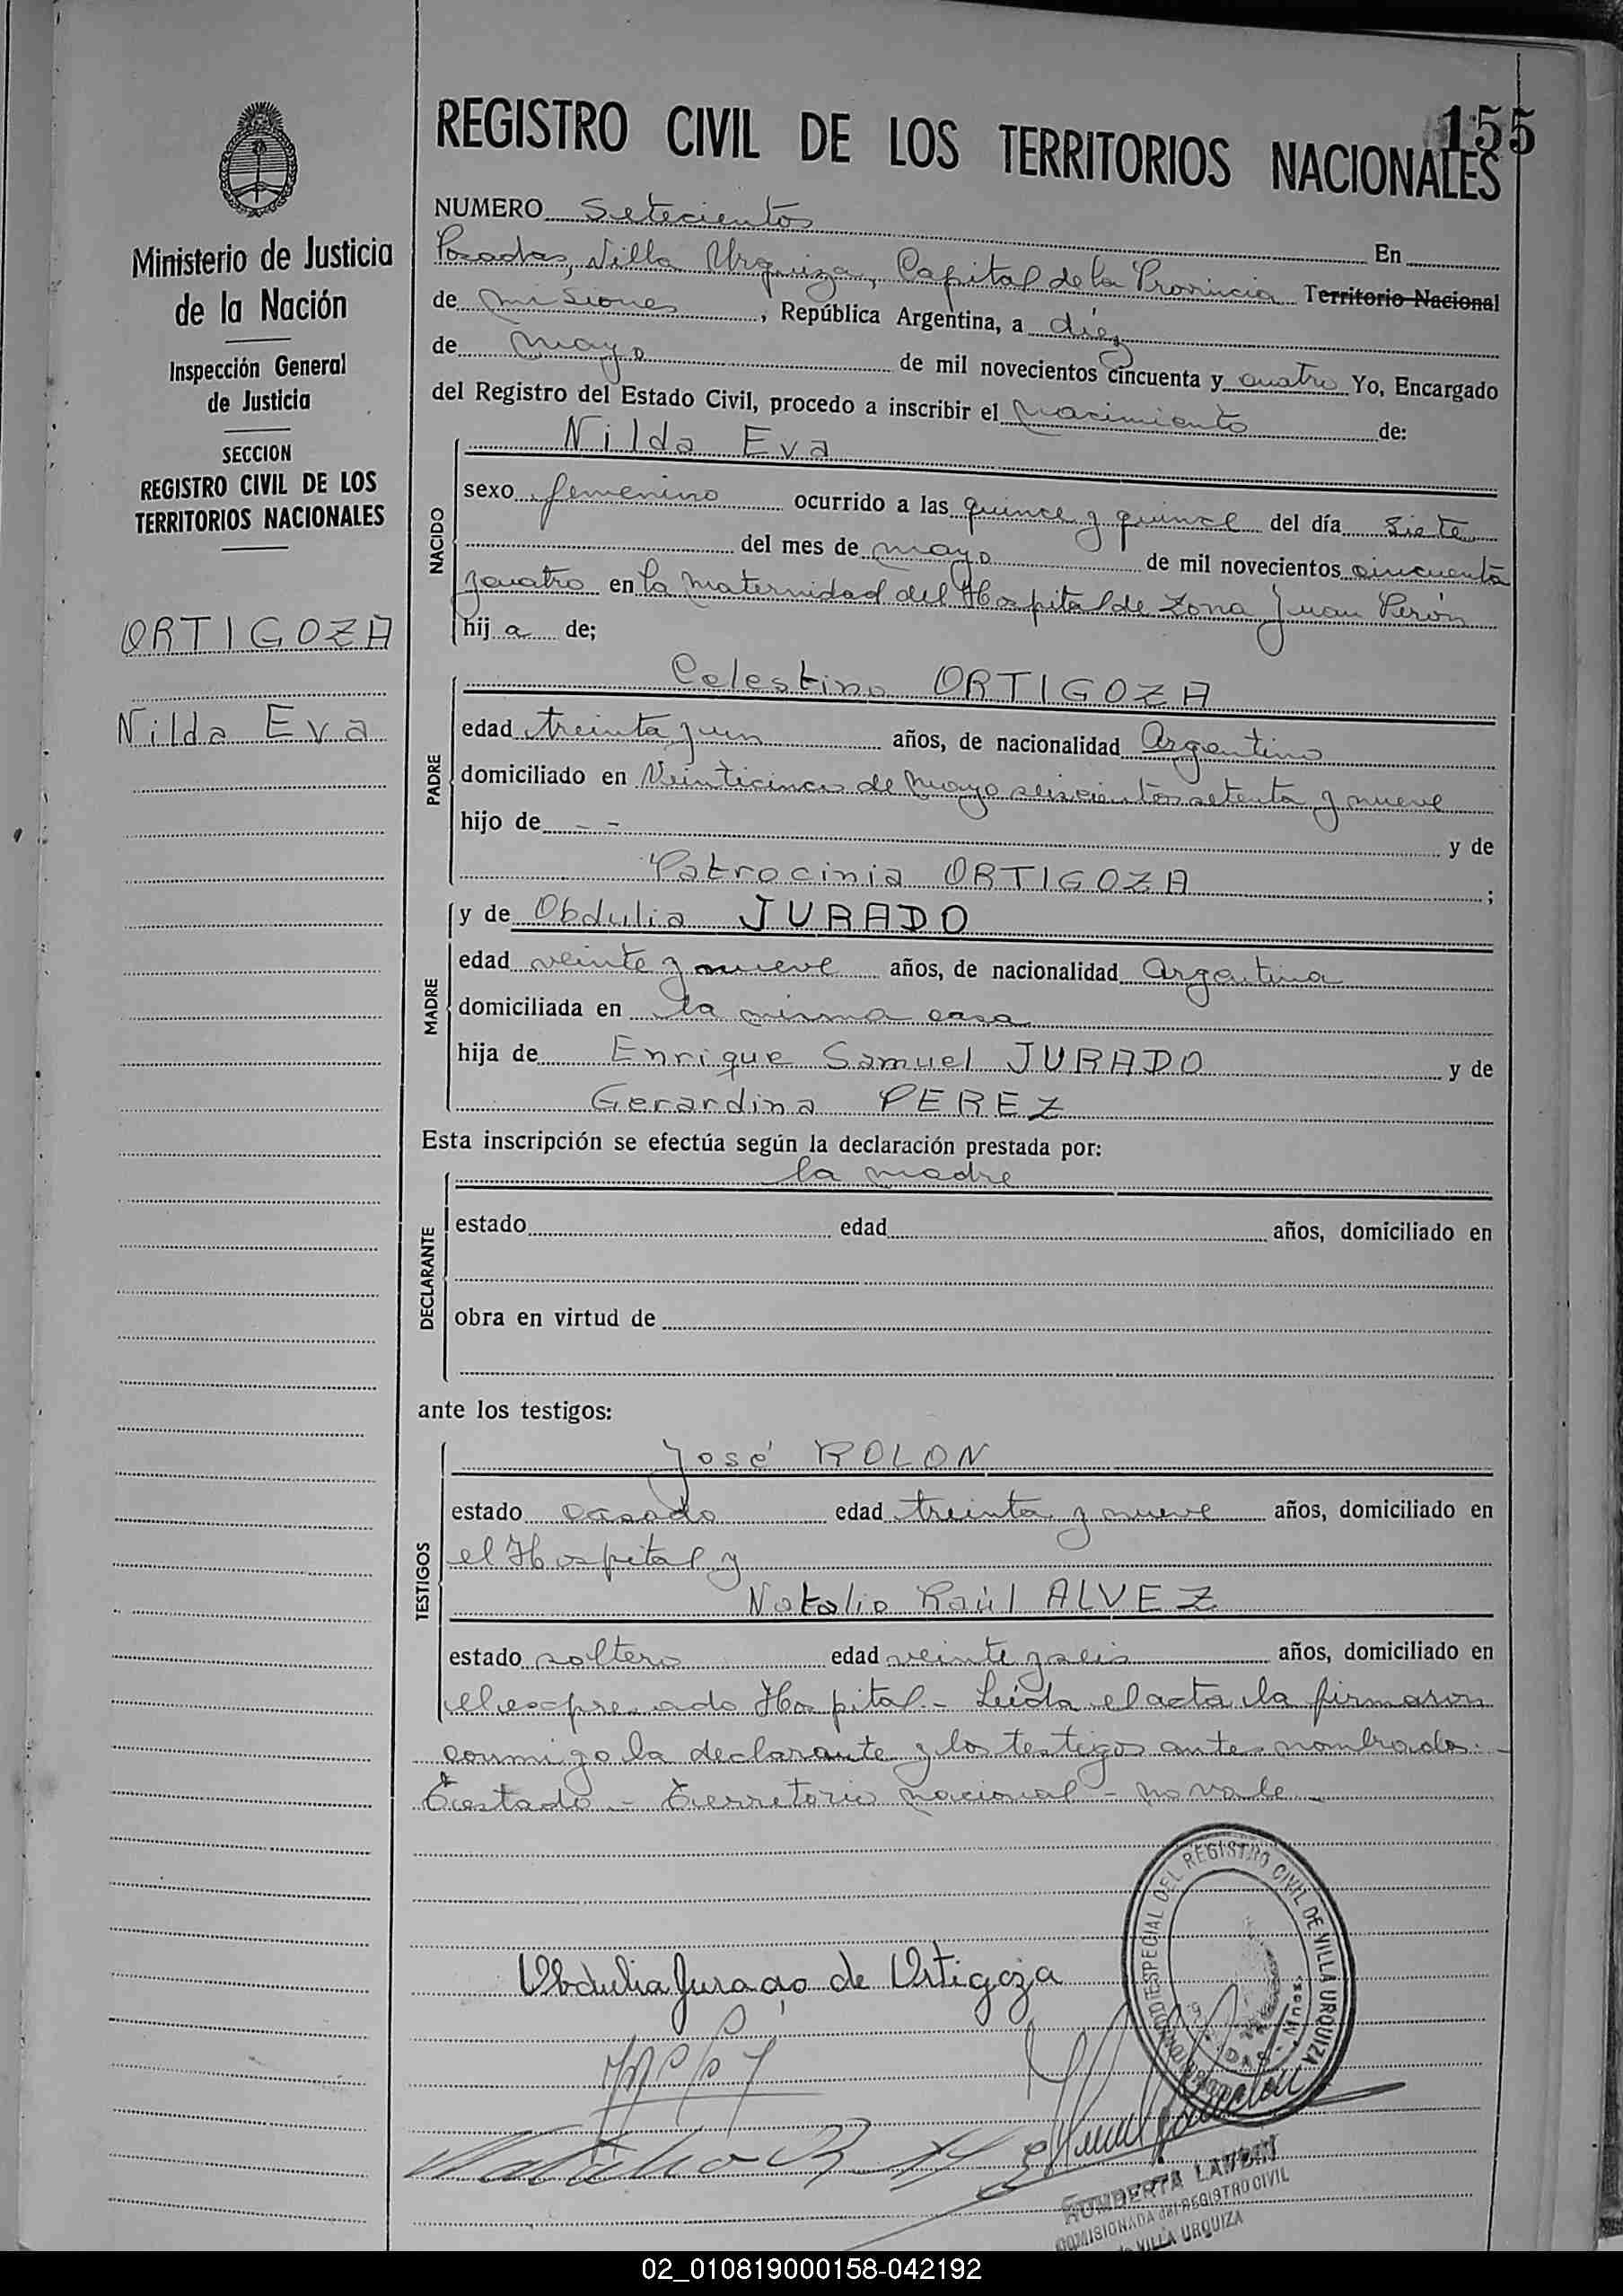 155
REGISTRO CIVIL DE LOS TERRITORIOS NACIONALES
Ministerio de Justicia
de la Nación
Inspección General
de Justicia
SECCION
REGISTRO CIVIL DE LOS
TERRITORIOS NACIONALES
ORTIGOZA
Nilda Eva
NUMERO Setecientos En
Posadas, Villa Urquiza, Capital de la Provincia Territorio Nacional
de Misiones, República Argentina, a diez
de mayo de mil novecientos cincuenta y cuatro Yo, Encargado
del Registro del Estado Civil, procedo a inscribir el nacimiento de:
NACIDO
Nilda Eva
sexo femenino ocurrido a las quince y quince del día siete
del mes de mayo de mil novecientos cincuenta
y cuatro en la Maternidad del Hospital de Zona Juan Perón
hij a de;
PADRE
Celestino ORTIGOZA
edad treinta y un años, de nacionalidad Argentino
domiciliado en Veinticinco de Mayo seiscientos setenta y nueve
hijo de - - y de
Patrocinia ORTIGOZA ;
MADRE
y de Obdulia JURADO
edad veinte y nueve años, de nacionalidad Argentina
domiciliada en la misma casa
hija de Enrique Samuel JURADO y de
Gerardina PEREZ
Esta inscripción se efectúa según la declaración prestada por:
DECLARANTE
la madre
estado edad años, domiciliado en
obra en virtud de
ante los testigos:
TESTIGOS
José ROLON
estado casado edad treinta y nueve años, domiciliado en
el Hospital y
Natalio Raúl ALVEZ
estado soltero edad veinte y seis años, domiciliado en
el expresado Hospital - Leida el acta la firmaron
conmigo la declarante y los testigos antes nombrados. -
Testado - Territorio nacional - no vale
Obdulia Jurado de Ortigoza
ESPECIAL DEL REGISTRO CIVIL DE VILLA URQUIZA
Natalio R
HUMBERTA
COMISIONADA del REGISTRO CIVIL
VILLA URQUIZA
02_010819000158-042192